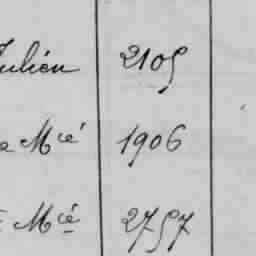 Julien 2105
e Mcié 1906
Mcié 2757